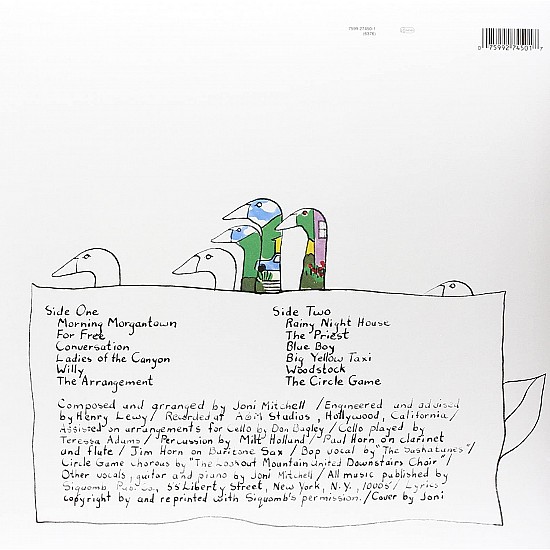 7599-27450-1
(6376)
0 75992 74501 7
Side One
Morning Morgantown
For Free
Conversation
Ladies of the Canyon
Willy
The Arrangement
Side Two
Rainy Night House
The Priest
Blue Boy
Big Yellow Taxi
Woodstock
The Circle Game
Composed and arranged by Joni Mitchell / Engineered and advised
by Henry Lewy / Recorded at A&M Studios, Hollywood, California /
Assisted on arrangements for Cello by Don Bagley / Cello played by
Teressa Adams / Percussion by Milt Holland / Paul Horn on clarinet
and flute / Jim Horn on Baritone Sax / Bop vocal by "The Saskatunes" /
Circle Game chorous by "The Lookout Mountain United Downstairs Choir" /
Other vocals, guitar and piano by Joni Mitchell / All music published by
Siquomb Pub. Co., 55 Liberty Street, New York, N.Y., 10005 / Lyrics
copyright by and reprinted with Siquomb's permission. / Cover by Joni